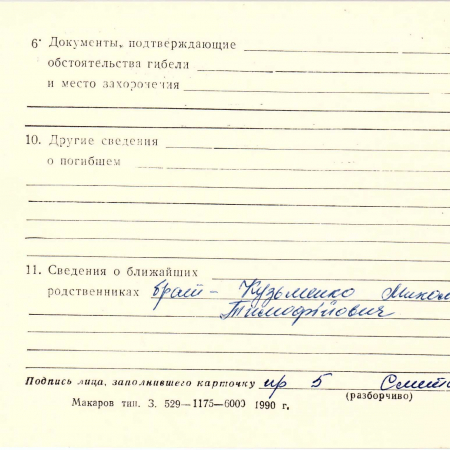 6. Документы, подтверждающие
обстоятельства гибели
и место захоронения
10. Другие сведения
о погибшем
11. Сведения о ближайших
родственниках брат – Кузьменко Микол
Тимофійович
Подпись лица, заполнившего карточку пр 5 Смета
(разборчиво)
Макаров тип. З. 529—1175—6000 1990 г.